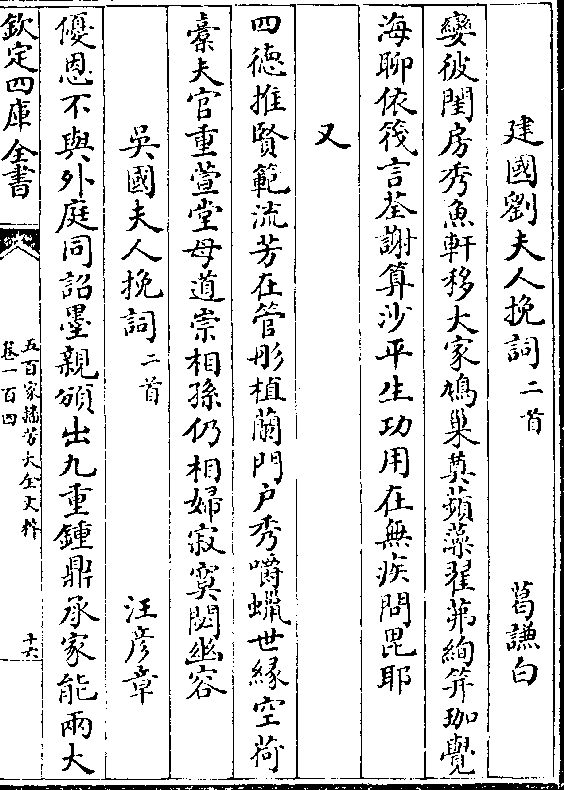 建國劉夫人挽詞二首 葛謙白
孌彼閨房秀魚軒移大家鳩巢奠蘋藻翟茀絢笄珈覺
海聊依筏言荃謝算沙平生功用在無疾問毘耶
又
四德推賢範流芳在管彤植蘭門戸秀嚼蠟世緣空荷
橐夫官重萱堂母道崇相孫仍相婦寂寞閟幽容
吳國夫人挽詞二首 汪彦章
優恩不與外庭同詔墨親頒出九重鍾鼎承家能兩大
欽定四庫全書
五百家播芳大全文粹
卷一百四
十六